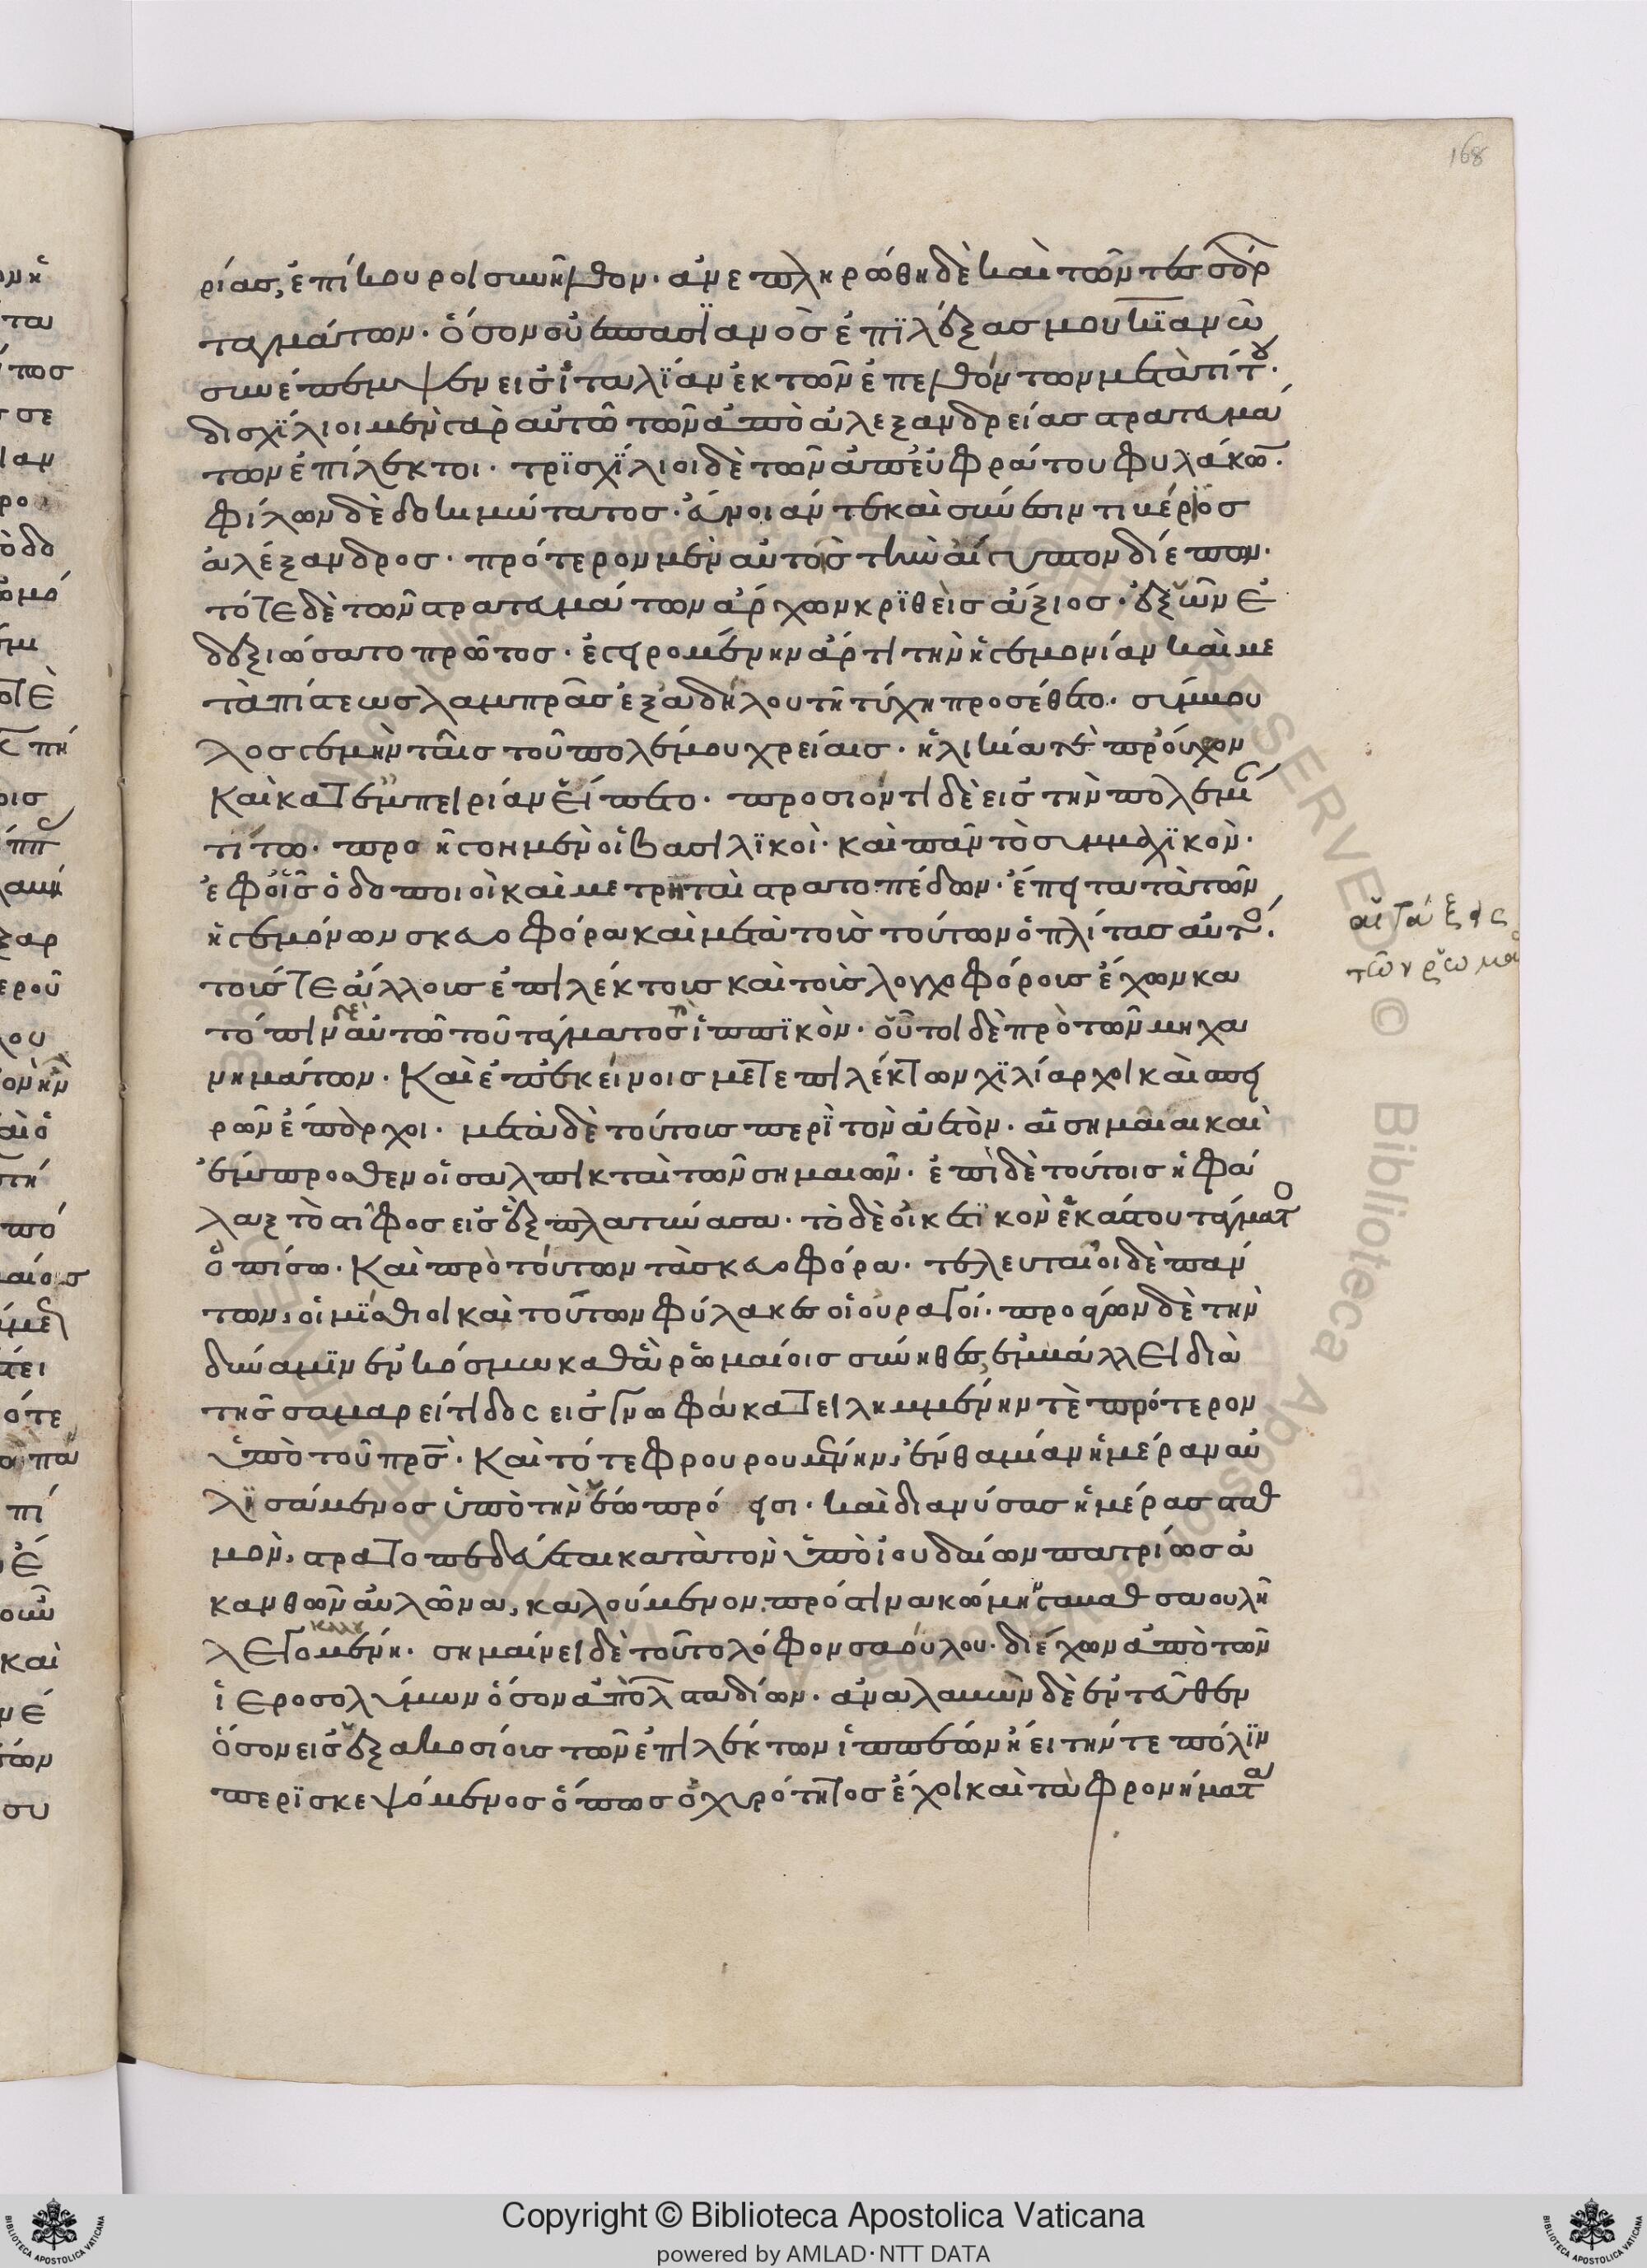 168
ρίας, ἐπίκουροι συνῆλθον· ἀνεπληρώθη δὲ καὶ τῶν τεσσάρ
ταγμάτων· ὅσον οὐεσπασιανὸς ἐπιλέξας μουκιανῷ
συνέπεμψεν εἰς ἰταλίαν ἐκ τῶν ἐπελθόντων μετὰ τίτου·
δισχίλιοι μὲν γὰρ αὐτῶ τῶν ἀπὸ ἀλεξανδρείας στρατευμά
των ἐπίλεκτοι· τρισχίλιοι δὲ τῶν ἀπ' εὐφράτου φυλάκων·
φίλων δὲ δοκιμώτατος· εὔνοιάν τε καὶ σύνεσιν τιβέριος
ἀλέξανδρος· πρότερον μὲν αὐτοῖς τὴν αἴγυπτον διέπων·
τότε δὲ τῶν στρατευμάτων ἄρχων κριθεὶς ἄξιος· ἐξ ὧν ἐ
δεξιώσατο πρῶτος· ἐγειρομένην ἄρτι τὴν ἡγεμονίαν καὶ με
τὰ πίστεως λαμπρᾶς ἐξ ἀδήλου τῆ τύχη προσέθετο· σύμβου
λος γε μὴν ταῖς τοῦ πολέμου χρείαις· ἡλικία τὲ προύχων
καὶ κατ' ἐμπειρίαν εἵπετο· προσιόντι δὲ εἰς τὴν πολεμί
τίτω· προῆγον μὲν οἱ βασιλικοὶ· καὶ πᾶν τὸ συμμαχικὸν·
ἐφ' οἷς ὁδοποιοὶ καὶ μετρηταὶ στρατοπέδων· ἔπειτα τὰ τῶν
ἡγεμόνων σκευοφόρα καὶ μετὰ τοὺς τούτων ὁπλίτας αὐτὸς·
τούς τε ἄλλους ἐπιλέκτους καὶ τοὺς λογχοφόρους ἔχων κα
τόπιν δὲ αὐτῶ τοῦ τάγματος τὸ ἱππικὸν· οὗτοι δὲ πρὸ τῶν μηχα
νημάτων· καὶ ἐπ' ἐκείνοις μετ' ἐπιλέκτων χιλίαρχοι καὶ σπει
ρῶν ἔπαρχοι· μετὰ δὲ τούτους περὶ τὸν ἀετὸν· αἱ σημαῖαι καὶ
ἔμπροσθεν οἱ σαλπικταὶ τῶν σημαιῶν· ἐπὶ δὲ τούτοις ἡ φά
λαγξ τὸ στίφος εἰς ἓξ πλατύνασα· τὸ δὲ οἰκετικὸν ἑκάστου τάγματο
ὀπίσω· καὶ πρὸ τούτων τὰ σκευοφόρα· τελευταῖοι δὲ πάν
των, οἱ μίσθιοι καὶ τούτων φύλακες οἱ οὐραγοί· προάγων δὲ τὴν
δύναμιν ἐν κόσμω καθὰ ῥωμαίοις σύνηθες, ἐμβάλλει διὰ
τῆς σαμαρείτιδος εἰς γνωφὰ κατειλημμένην τὲ πρότερον
ὑπὸ τοῦ πρς· καὶ τότε φρουρουμένην, ἔνθα μίαν ἡμέραν αὐ
λισάμενος ὑπὸ τὴν ἕω πρόεισι· καὶ διανύσας ἡμέρας σταθ
μὸν, στρατοπεδεύεται κατὰ τὸν ὑπὸ ἰουδαίων πατρίως ἀ
κανθῶν αὐλῶνα, καλούμενον, πρός τινα κώμη γαμαθ σαουλῆ
καλου
λεγομένη· σημαίνει δὲ τοῦτο λόφον σαούλου· διέχων ἀπὸ τῶν
ἱεροσολύμων ὅσον ἀπὸ λ σταδίων· ἀναλαβὼν δὲ ἐντεῦθεν
ὅσον εἰς ἑξακοσίους τῶν ἐπιλέκτων ἱππέων ἤει τήν τε πόλιν
περισκεψόμενος ὅπως ὀχυρότητος ἔχοι καὶ τὰ φρονήματα
αἱ τάξεις
τῶν ῥωμαί
Copyright © Biblioteca Apostolica Vaticana
powered by AMLAD·NTT DATA